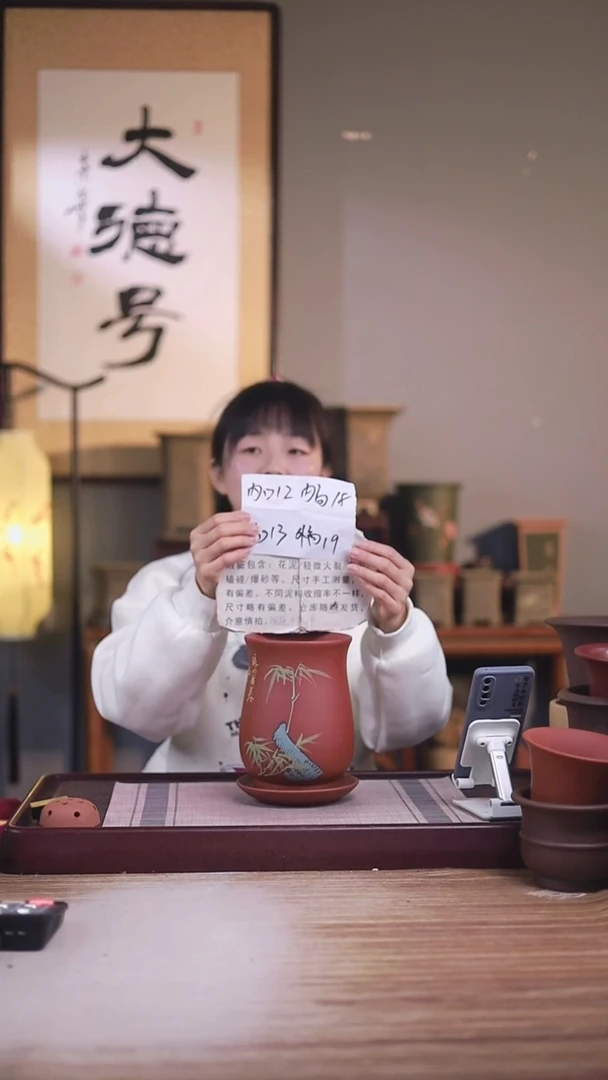 大
德
号
内口12 内高18
口13 外高19
包含：花泥 轻微火裂
磕碰/爆砂等。尺寸手工测量，
有偏差。不同泥料收缩率不一样，
尺寸略有偏差。仓库随机发货，
介意慎拍。